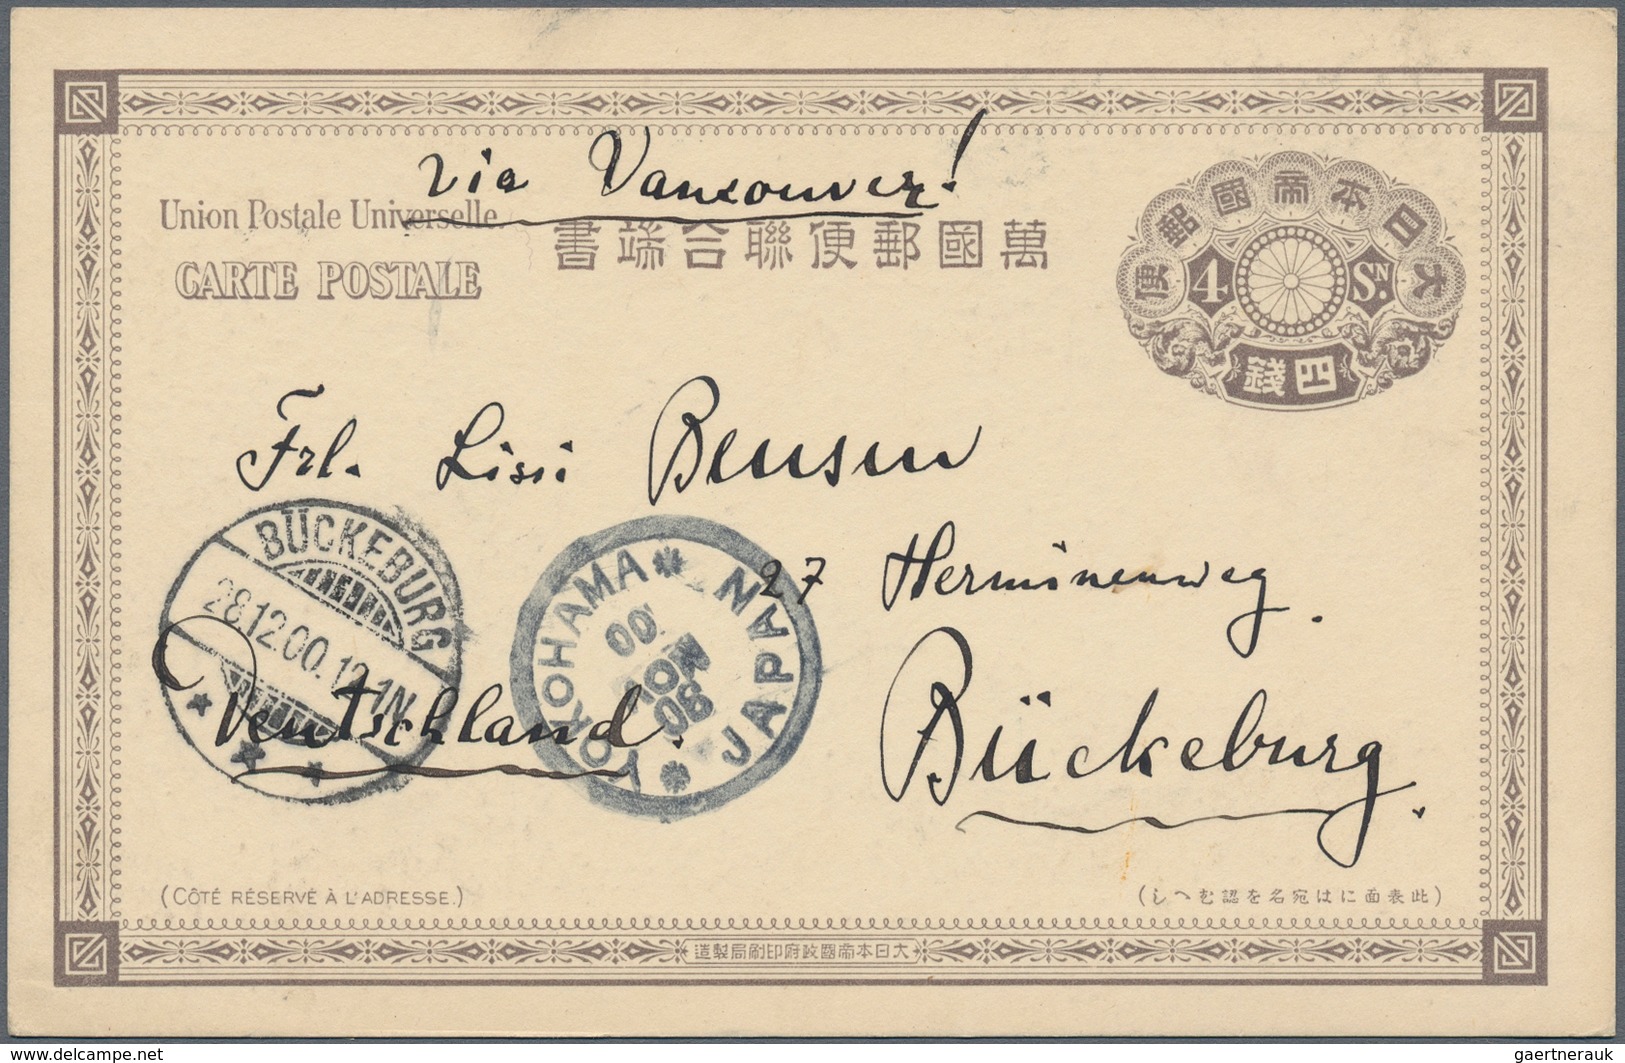 via Vancouver!
Union Postale Universelle.
CARTE POSTALE
書端合聯便郵國萬
便郵國帝本日大
4 SN.
錢四
Frl. Lisi Bensen
27 Herminenweg.
Bückeburg.
Deutschland.
BÜCKEBURG
28.12.00.12-1N.
YOKOHAMA JAPAN
00
NOV
08
(CÔTÉ RÉSERVÉ À L'ADRESSE.)
(しへむを認を名宛はに面表此)
造製局刷印府政國帝本日大
www.delcampe.net
gaertnerauk